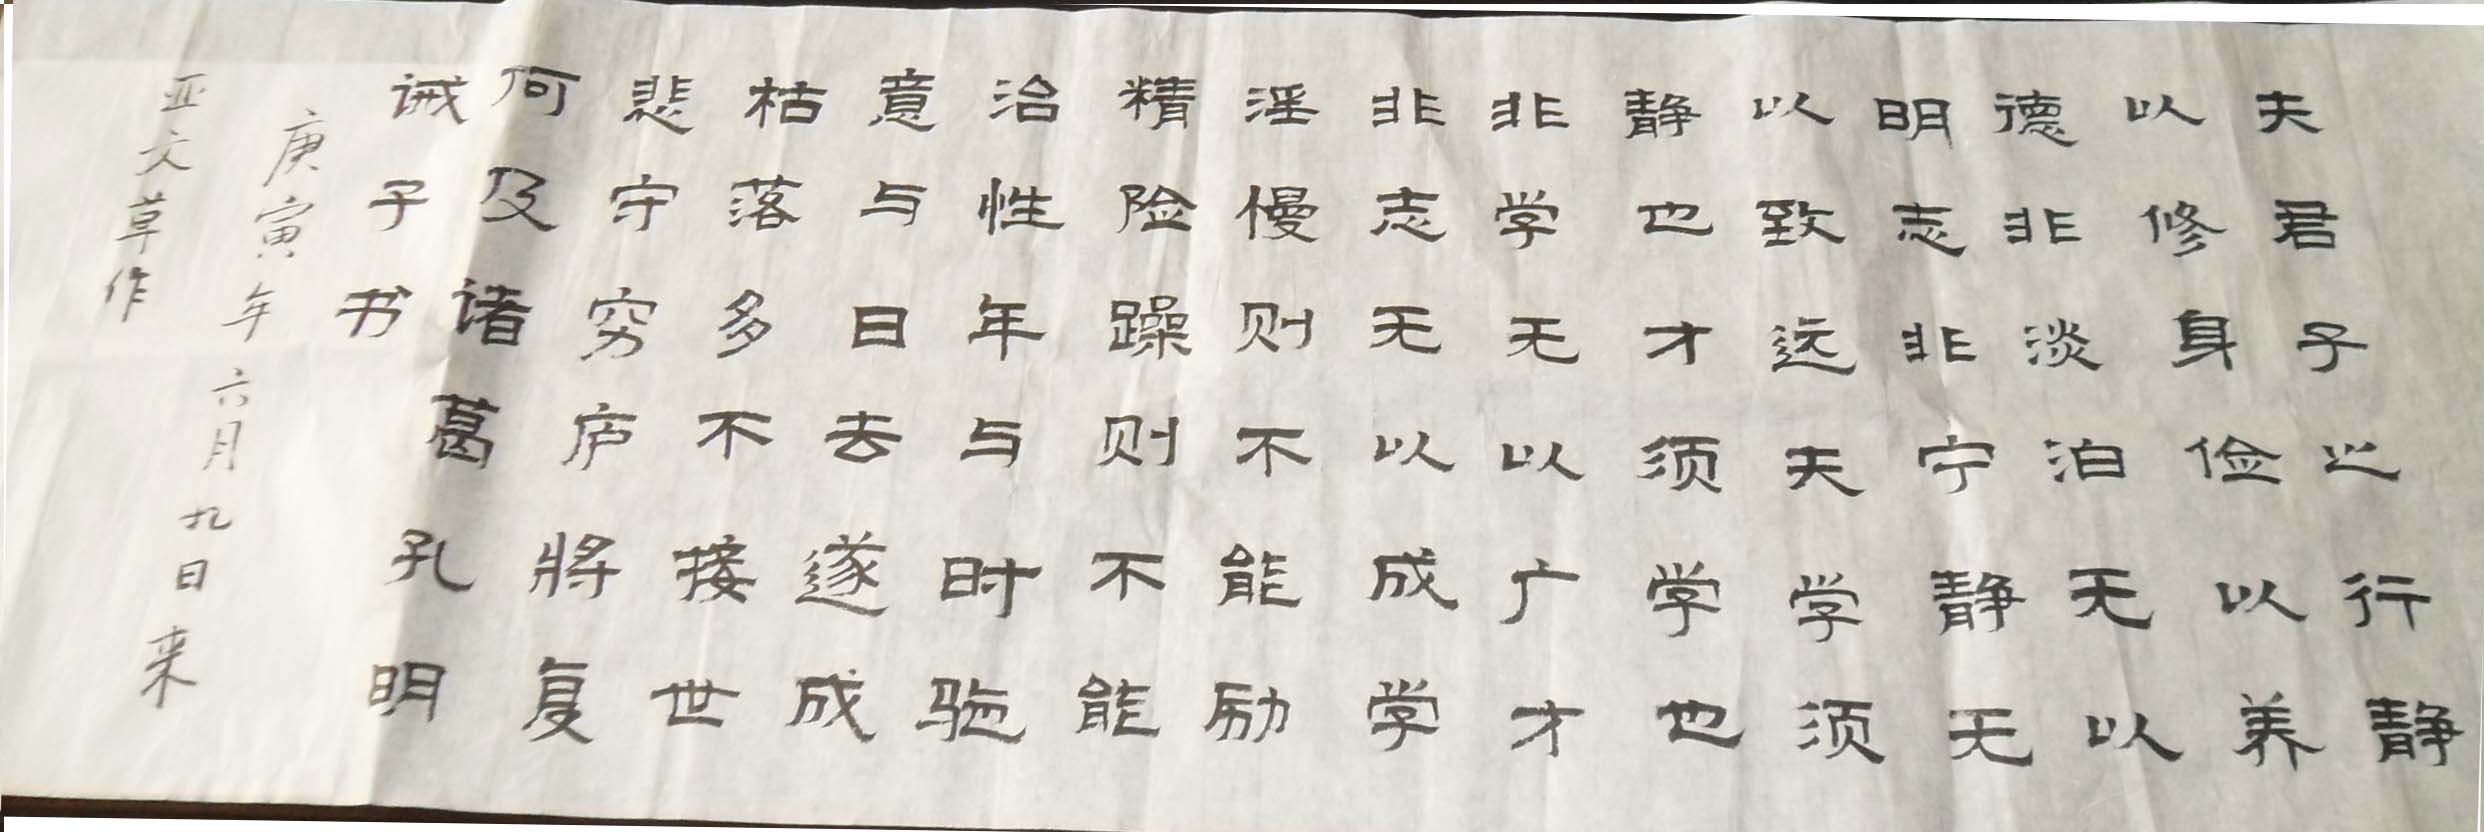 夫君子之行静
以修身俭以养
德非淡泊无以
明志非宁静无
以致远夫学须
静也才须学也
非学无以广才
非志无以成学
淫慢则不能励
精险躁则不能
治性年与时驰
意与日去遂成
枯落多不接世
悲守穷庐将复
何及诸葛孔明
诫子书
庚寅年六月九日来
亚文草作